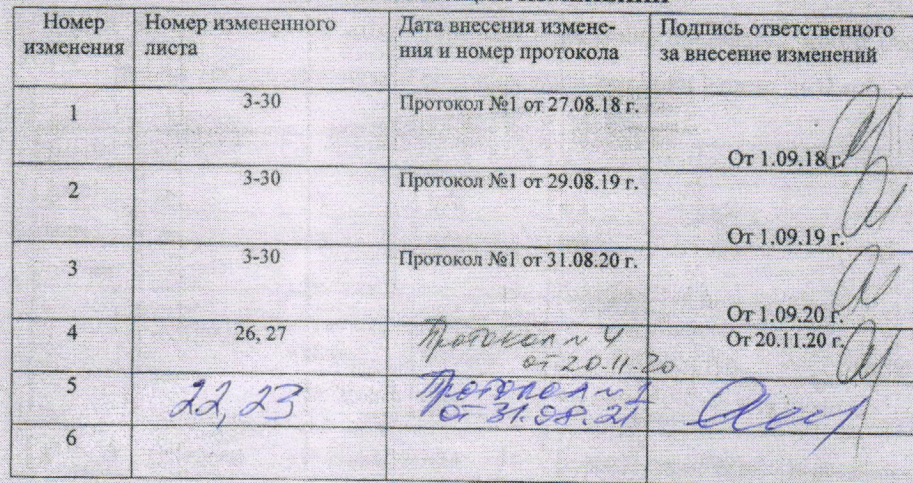 Номер изменения
Номер измененного листа
Дата внесения измене-
ния и номер протокола
Подпись ответственного
за внесение изменений
1
3-30
Протокол №1 от 27.08.18 г.
От 1.09.18 г.
2
3-30
Протокол №1 от 29.08.19 г.
От 1.09.19 г.
3
3-30
Протокол №1 от 31.08.20 г.
От 1.09.20 г.
4
26, 27
Протокол № 4
от 20.11.20
От 20.11.20 г.
5
22, 23
Протокол № 1
от 31.08.21
6